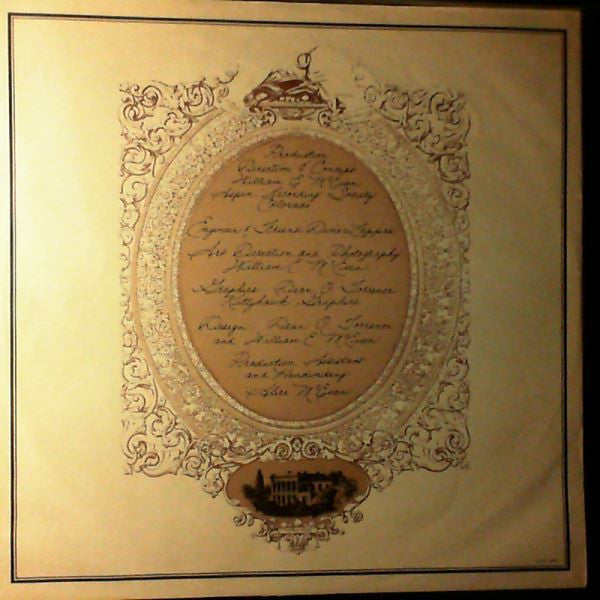 Production
Direction & Concept
William E. McEuen
Aspen Recording Society
Colorado
Engineer & Friend Dino Lappas
Art Direction and Photography
William E. McEuen
Graphics Dean O. Torrence
Kittyhawk Graphics
Design Dean O. Torrence
and William E. McEuen
Production Assistant
and Handwriting
Alice McEuen